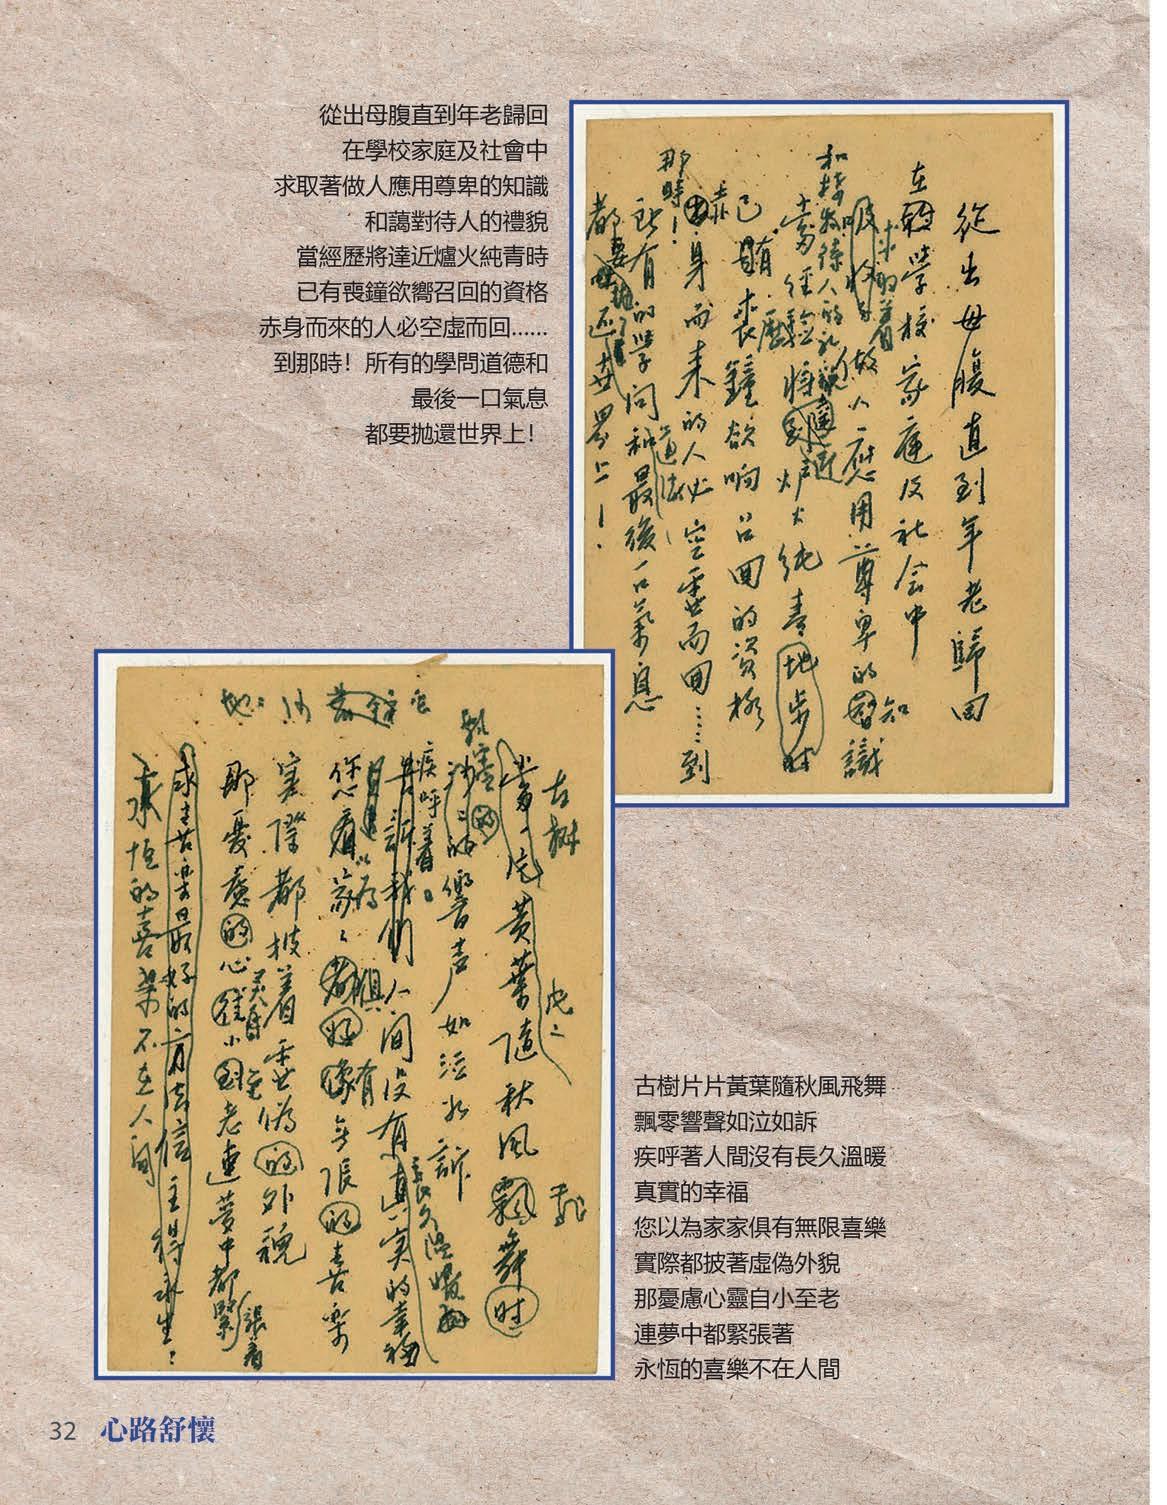 從出母腹直到年老歸回
在學校家庭及社會中
求取著做人應用尊卑的知識
和藹對待人的禮貌
當經歷將達近爐火純青時
已有喪鐘欲嚮召回的資格
赤身而來的人必空虛而回……
到那時！所有的學問道德和
最後一口氣息
都要拋還世界上！
從出母腹直到年老歸回
在學校家庭及社会中
做人應用尊卑的知識
已有喪鐘欲响召回的資格
赤身而来的人必空虛而回……到
那時！
所有的学问和最後一口氣息
都要拋还世界上！
古樹
黃葉隨秋風飄舞時
响声如泣如訴
疾呼着
人间没有真实的幸福
長久溫暖
您以為家家俱有無限的喜樂
實際都披着虛偽的外貌
那憂慮的心靈自小至老連夢中都緊張着
永恒的喜樂不在人间
古樹片片黃葉隨秋風飛舞
飄零響聲如泣如訴
疾呼著人間沒有長久溫暖
真實的幸福
您以為家家俱有無限喜樂
實際都披著虛偽外貌
那憂慮心靈自小至老
連夢中都緊張著
永恆的喜樂不在人間
32 心路舒懷